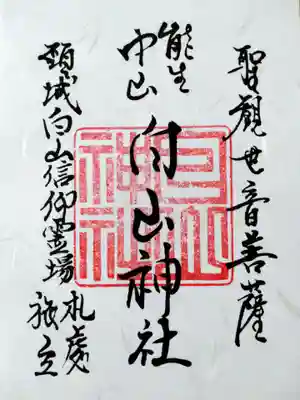 聖觀世音菩薩
能生
中山
白山神社
頸城白山信仰霊場
札處
白山神社